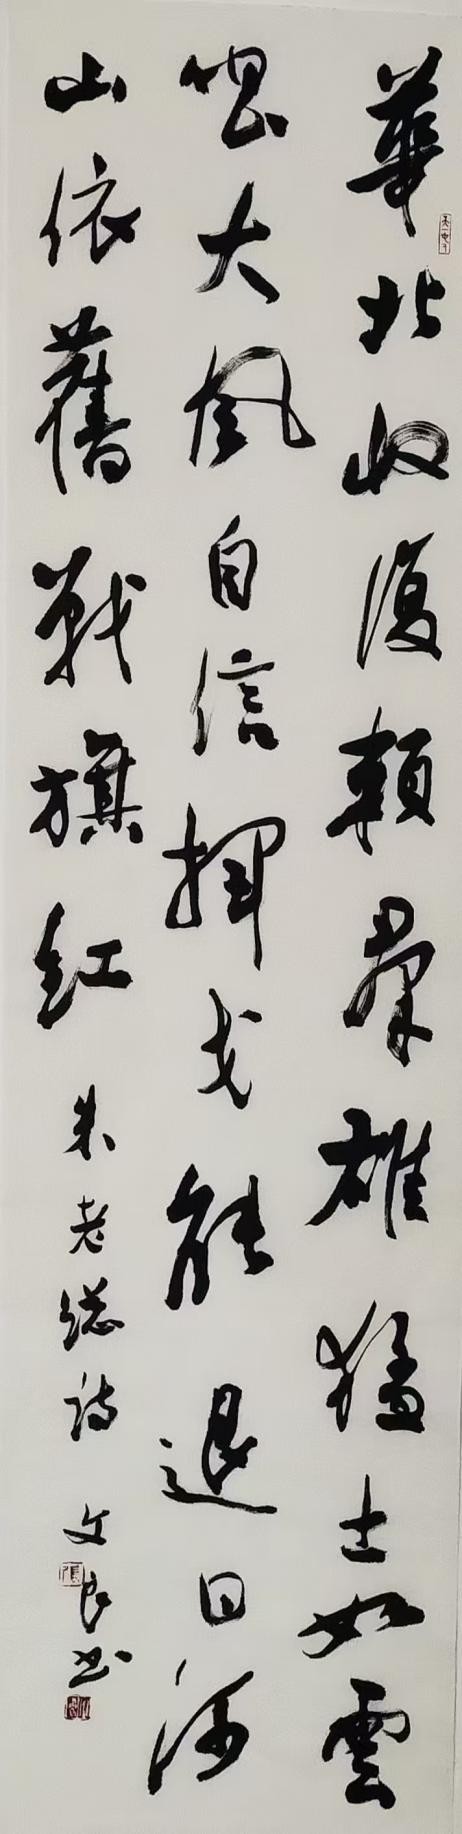 華北收復賴群雄猛士如雲
唱大風自信揮戈能退日河
山依舊戰旗紅 朱老總詩 文良书